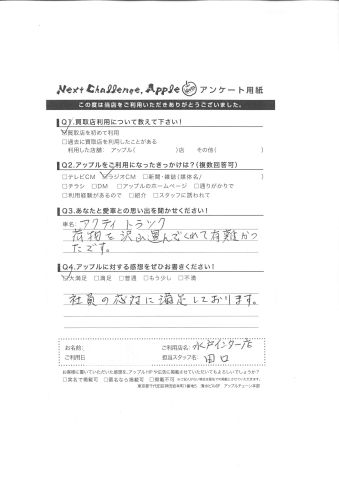 Next Challenge, Apple アンケート用紙
この度は当店をご利用いただきありがとうございました。
Q1.買取店利用について教えて下さい!
☑買取店を初めて利用
□過去に買取店を利用したことがある
利用した店舗: アップル( )店 その他( )
Q2.アップルをご利用になったきっかけは?(複数回答可)
□テレビCM ☑ラジオCM □新聞・雑誌(媒体名/ )
□チラシ □DM □アップルのホームページ □通りがかりで
□利用経験があるので □紹介 □スタッフに誘われて
Q3.あなたと愛車との思い出を聞かせください!
車名: アクティトラック
荷物を沢山運んでくれて有難かっ
たです。
Q4.アップルに対する感想をぜひお書きください!
☑大満足 □満足 □普通 □もう少し □不満
社員の応対に満足しております。
お名前: ご利用店名: 水戸インター店
ご利用日 担当スタッフ名: 田口
お客様に書いていただいた感想を、アップルHPや広告に掲載させていただいてもよろしいでしょうか?
□実名で掲載可 □匿名なら掲載可 □掲載不可